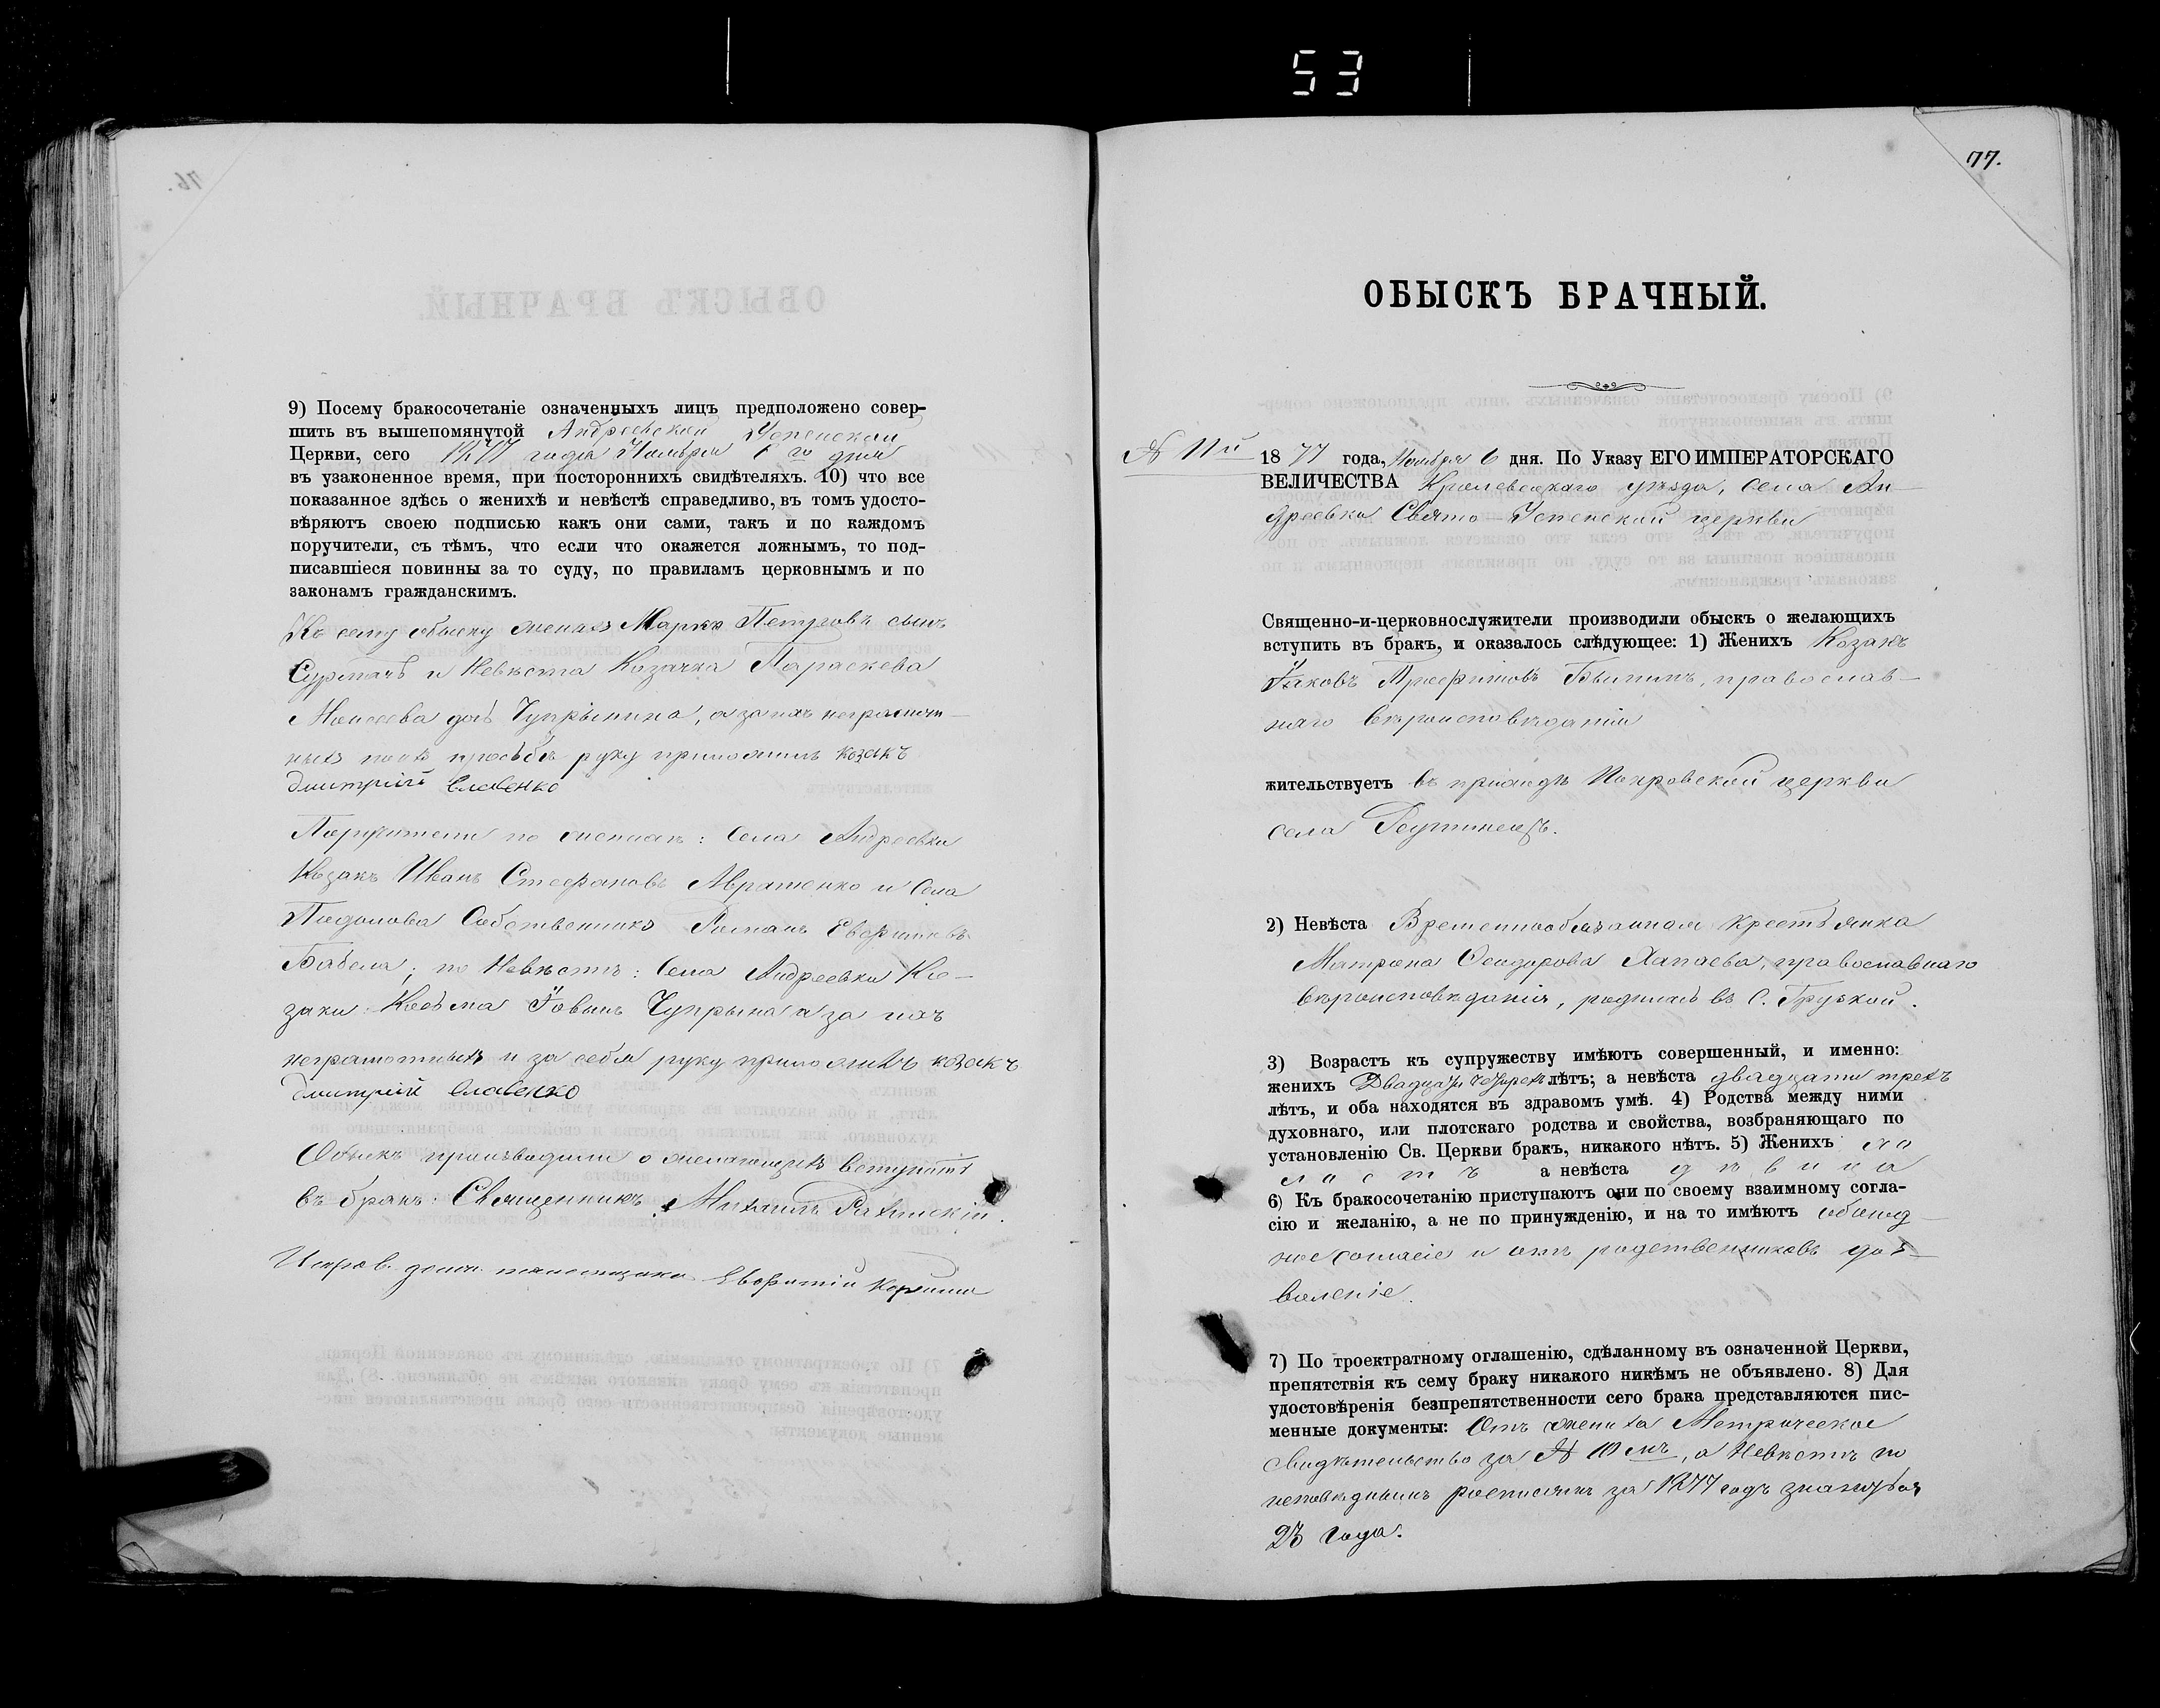 53
76.
ОБЫСКЪ БРАЧНЫЙ.
9) Посему бракосочетаніе означенныхъ лицъ предположено совер-
шить въ вышепомянутой Андреевской Успенской
Церкви, сего 1877 года Ноября 6 го дня
въ узаконенное время, при постороннихъ свидѣтеляхъ. 10) что все
показанное здѣсь о женихѣ и невѣстѣ справедливо, въ томъ удосто-
вѣряютъ своею подписью какъ они сами, такъ и по каждомъ
поручители, съ тѣмъ, что если что окажется ложнымъ, то под-
писавшіеся повинны за то суду, по правиламъ церковнымъ и по
законамъ гражданскимъ.
Къ сему обыску женихъ Марко Петровъ сынъ
Сурмачъ и Невѣста Козачка Параскева
Моисеева дочь Чупрынина, а за ихъ неграмот-
ныхъ по ихъ просьбѣ руку приложилъ козакъ
Дмитрій
Поручители по женихѣ: Села Андреевки
Козакъ Иванъ Стефановъ Авраменко и Села
Подолова Собственникъ Романъ Евфимовъ
Бабела; по Невѣстѣ: Села Андреевки Ко-
заки Косьма Іовинъ Чупрына а за нихъ
неграмотныхъ и за себя руку приложилъ козакъ
Дмитрій
Обыскъ производили о желающихъ вступить
въ бракъ: Священникъ Михаилъ
Исправ. долж. псаломщика Евфимій
77.
ОБЫСКЪ БРАЧНЫЙ.
№ 11й 1877 года, Ноября 6 дня. По Указу ЕГО ИМПЕРАТОРСКАГО
ВЕЛИЧЕСТВА Кролевецкаго уѣзда, села Ан-
дреевки Свято-Успенской церкви
Священно-и-церковнослужители производили обыскъ о желающихъ
вступить въ бракъ, и оказалось слѣдующее: 1) Женихъ Козакъ
Іаковъ Трофимовъ православ-
наго вѣроисповѣданія
жительствуетъ въ приходѣ Покровской церкви
села Реутинецъ.
2) Невѣста Временнообязанная крестьянка
Матрона Феодорова Хапаева, православнаго
вѣроисповѣданія, родилась въ с. Грузкой.
3) Возрастъ къ супружеству имѣютъ совершенный, и именно:
женихъ Двадцати четырехъ лѣтъ; а невѣста двадцати трехъ
лѣтъ, и оба находятся въ здравомъ умѣ. 4) Родства между ними
духовнаго, или плотскаго родства и свойства, возбраняющаго по
установленію Св. Церкви бракъ, никакого нѣтъ. 5) Женихъ хо
лостъ а невѣста дѣвица
6) Къ бракосочетанію приступаютъ они по своему взаимному согла-
сію и желанію, а не по принужденію, и на то имѣютъ обоюд-
ное согласіе и отъ родственниковъ доз-
воленіе.
7) По троекратному оглашенію, сдѣланному въ означенной Церкви,
препятствія къ сему браку никакого никѣмъ не объявлено. 8) Для
удостовѣренія безпрепятственности сего брака представляются пис-
менные документы: Отъ жениха Метрическое
свидѣтельство за № 10мъ, о Невѣстѣ по
исповѣднымъ росписямъ за 1877 годъ значится
23 года.